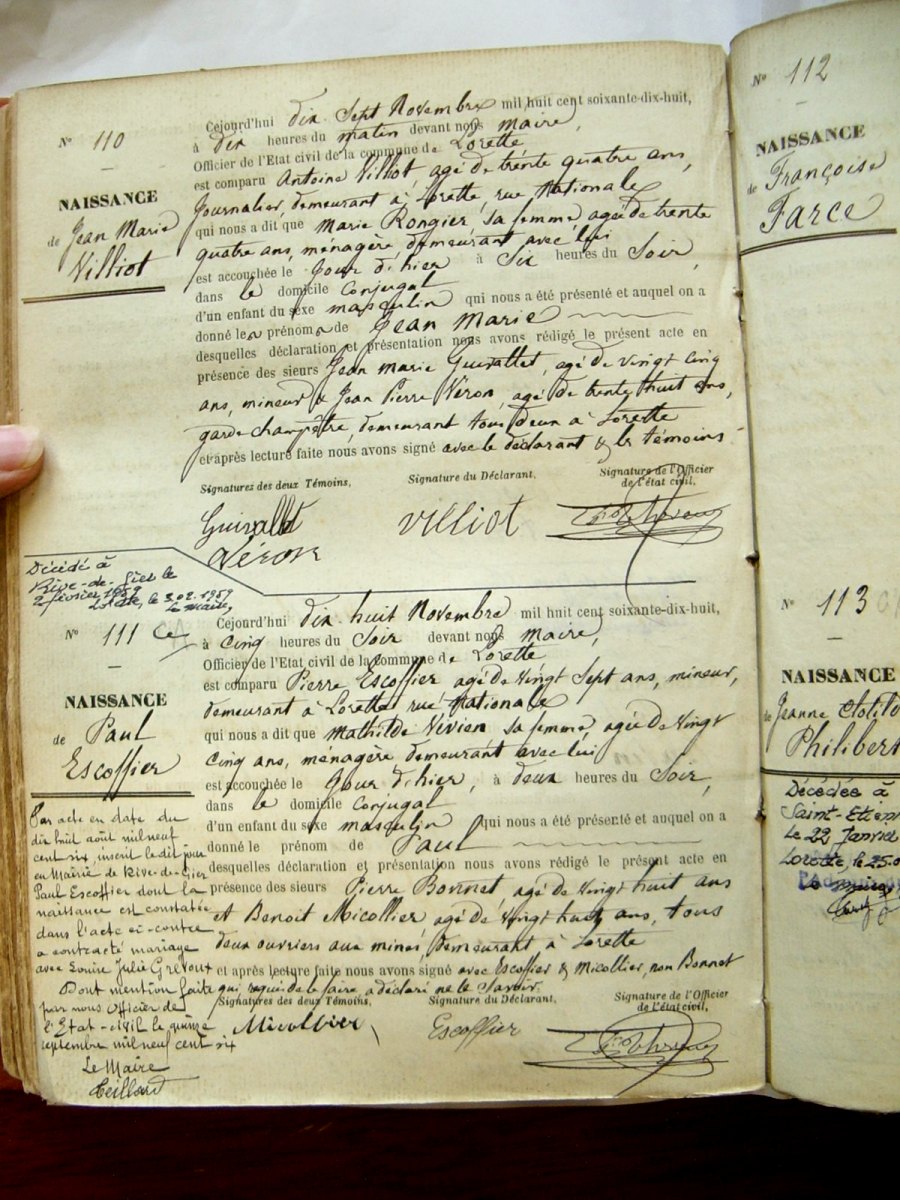 N° 110
NAISSANCE
de Jean Marie
Villiot
Cejourd'hui dix Sept Novembre mil huit cent soixante-dix-huit,
à dix heures du matin devant nous maire,
Officier de l'Etat civil de la commune de Lorette
est comparu Antoine Villiot, agé de trente quatre ans,
Journalier, demeurant à Lorette, rue Nationale
qui nous a dit que Marie Rongier, sa femme agée de trente
quatre ans, ménagère demeurant avec lui
est accouchée le Jour d'hier à Six heures du Soir,
dans le domicile Conjugal
d'un enfant du sexe masculin qui nous a été présenté et auquel on a
donné le prénom de Jean Marie
desquelles déclaration et présentation nous avons rédigé le présent acte en
présence des sieurs Jean marie Guirallet, agé de vingt cinq
ans, mineur & Jean Pierre Véron, agé de trente huit ans,
garde champêtre, demeurant tous deux à Lorette
et après lecture faite nous avons signé avec le déclarant & les témoins
Signatures des deux Témoins,
Signature du Déclarant,
Signature de l'Officier
de l'état civil,
Guirallet
Véron
Villiot
Décédé à
Rive-de-Gier le
2 février 1959
Lorette, le 3.02.1959
le maire,
N° 111
NAISSANCE
de Paul
Escoffier
Cejourd'hui dix huit Novembre mil huit cent soixante-dix-huit,
à Cinq heures du Soir devant nous maire,
Officier de l'Etat civil de la commune de Lorette
est comparu Pierre Escoffier agé de vingt Sept ans, mineur,
demeurant à Lorette rue Nationale
qui nous a dit que Mathilde Vivien sa femme, agée de vingt
Cinq ans, ménagère demeurant avec lui
est accouchée le Jour d'hier, à deux heures du Soir,
dans le domicile Conjugal
d'un enfant du sexe masculin qui nous a été présenté et auquel on a
donné le prénom de Paul
desquelles déclaration et présentation nous avons rédigé le présent acte en
présence des sieurs Pierre Bonnet agé de vingt huit ans
et Benoit Micollier agé de vingt huit ans, tous
deux ouvriers aux mines demeurant à Lorette
et après lecture faite nous avons signé avec Escoffier & Micollier, non Bonnet
qui requis de le faire a déclaré ne le Savoir.
Signatures des deux Témoins,
Signature du Déclarant,
Signature de l'Officier
de l'état civil,
Micollier
Escoffier
Par acte en date du
dix huit août mil neuf
cent six, inscrit le dit jour
en Mairie de Rive-de-Gier
Paul Escoffier dont la
naissance est constatée
dans l'acte ci-contre
a contracté mariage
avec Louise Julie Grevoux
Dont mention faite
par nous Officier de
l'Etat-civil le quinze
septembre mil neuf cent six
Le Maire
Teillard
N° 112
NAISSANCE
de Françoise
Farce
N° 113
NAISSANCE
de Jeanne Clotild
Philibert
Décédée à
Saint-Etien
Le 22 Janvie
Lorette, le 25.0